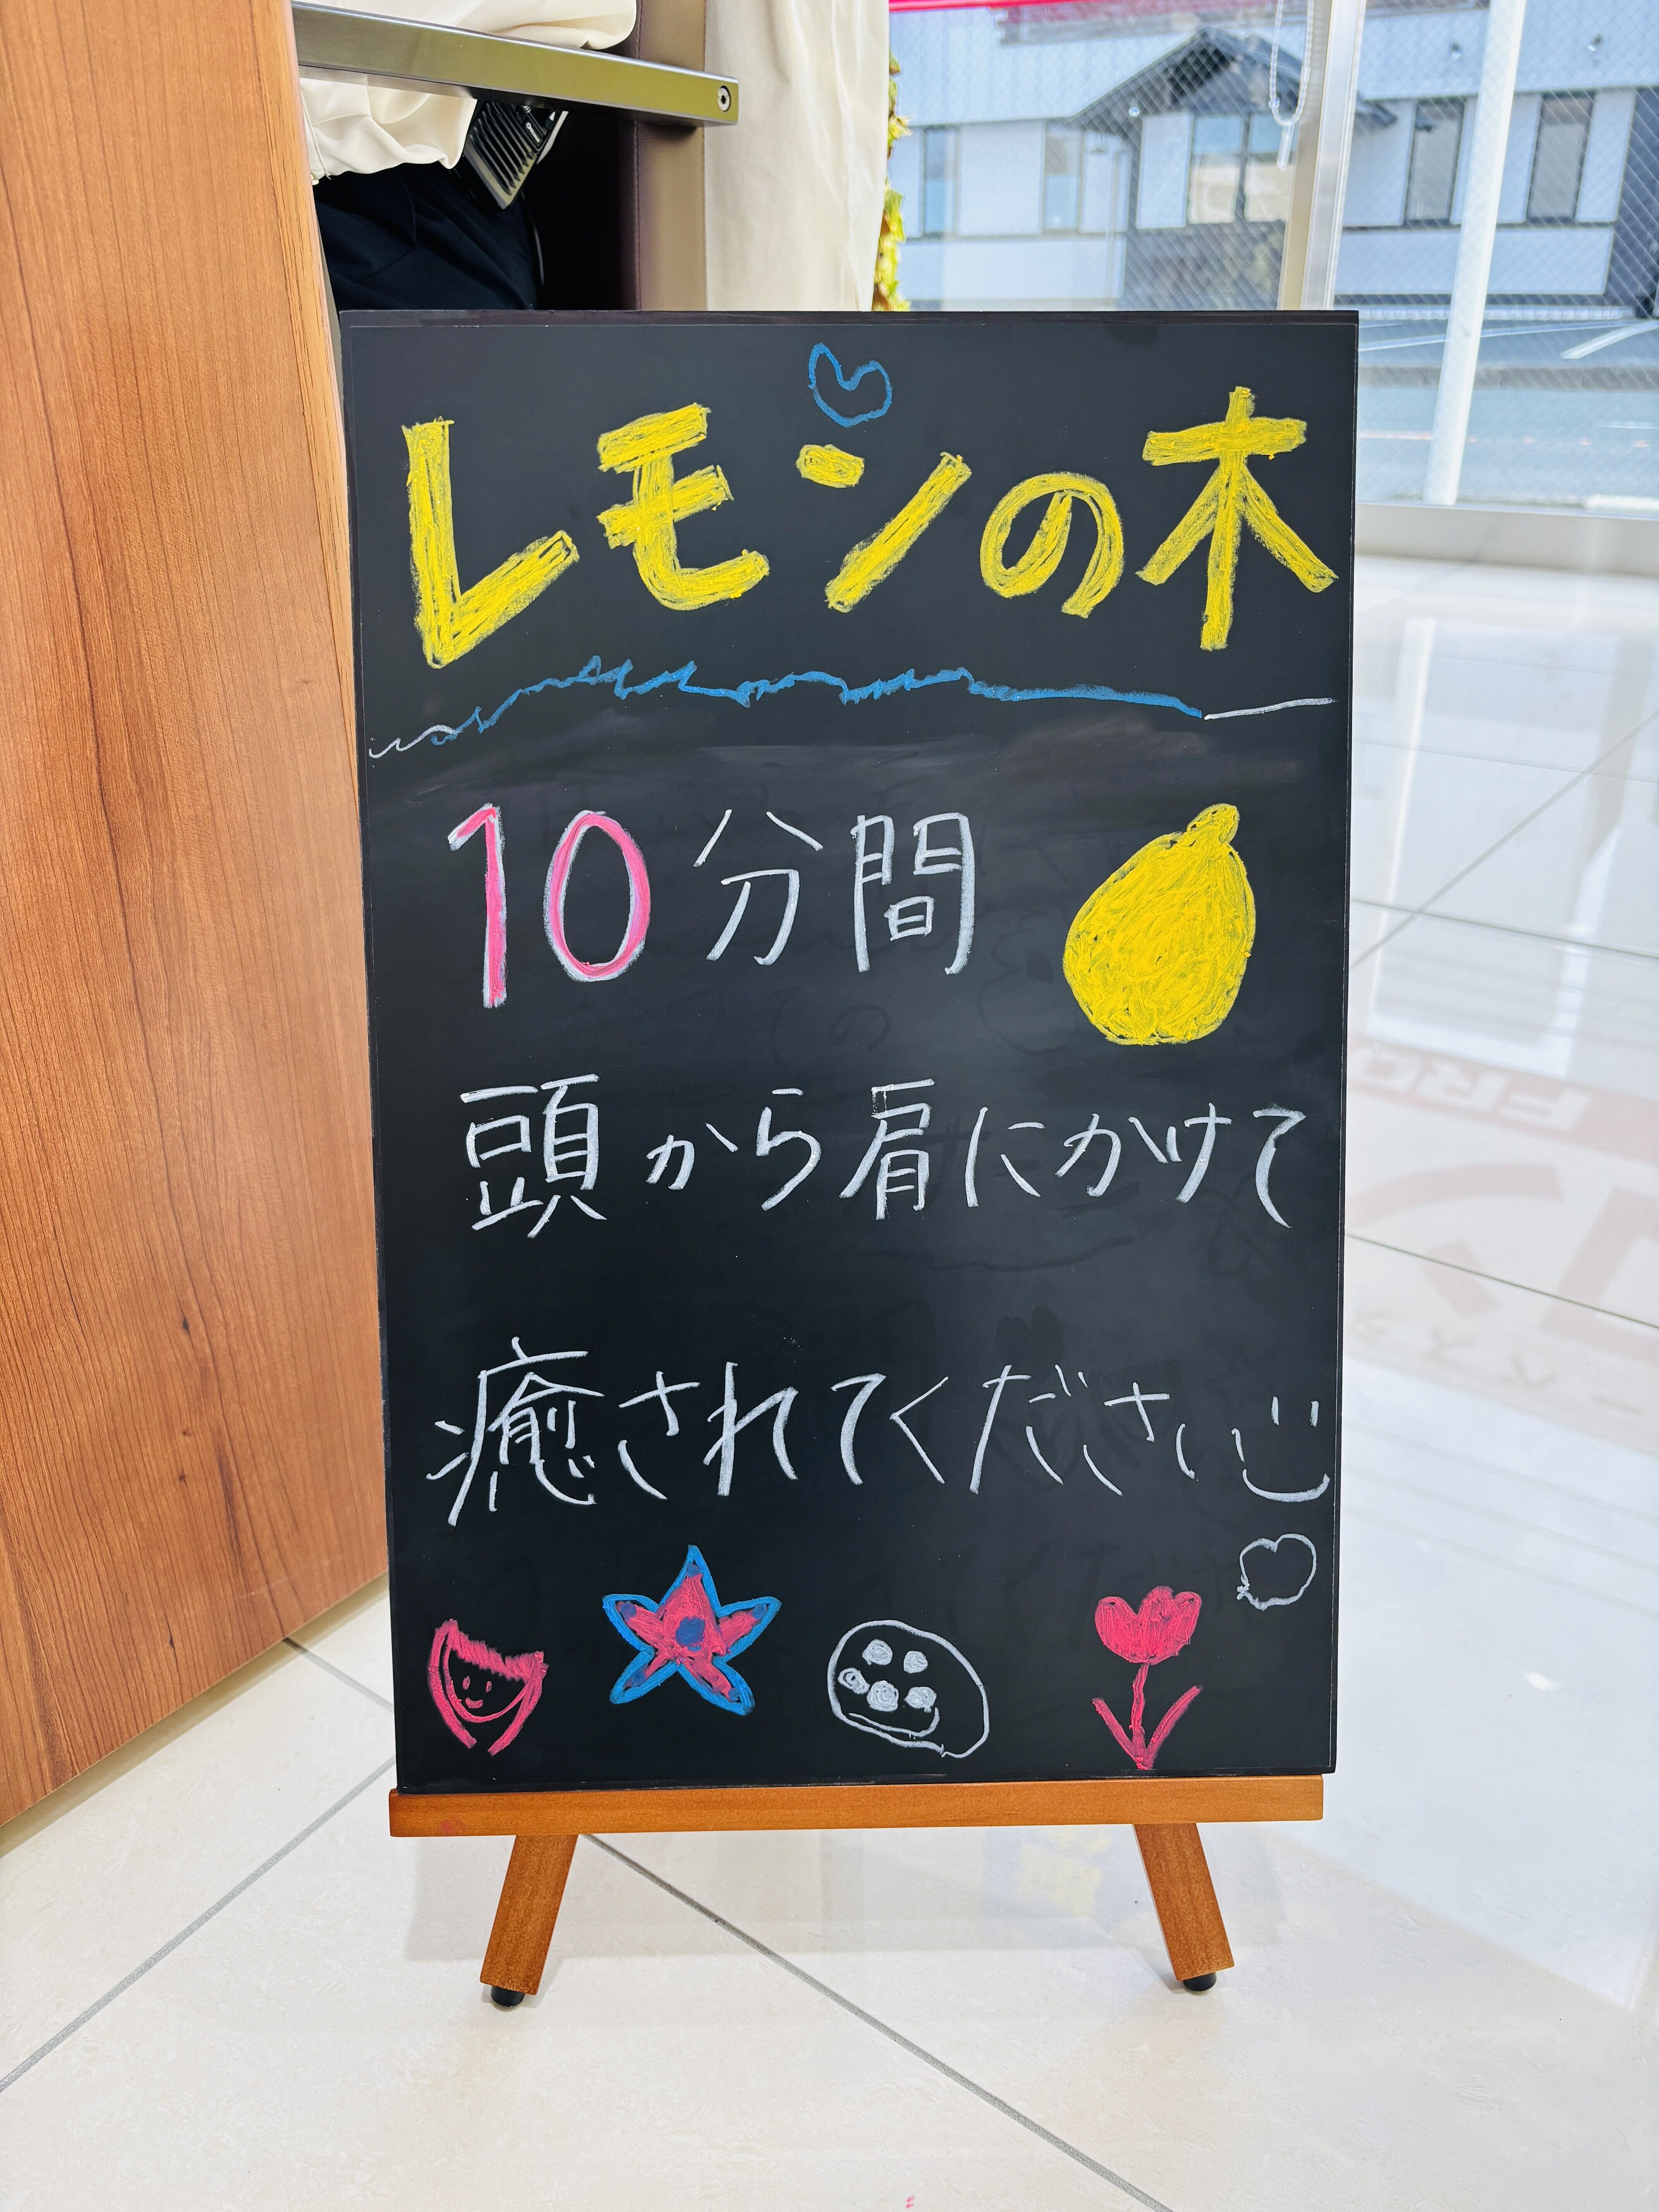 レモンの木
10分間
頭から肩にかけて
癒されてください